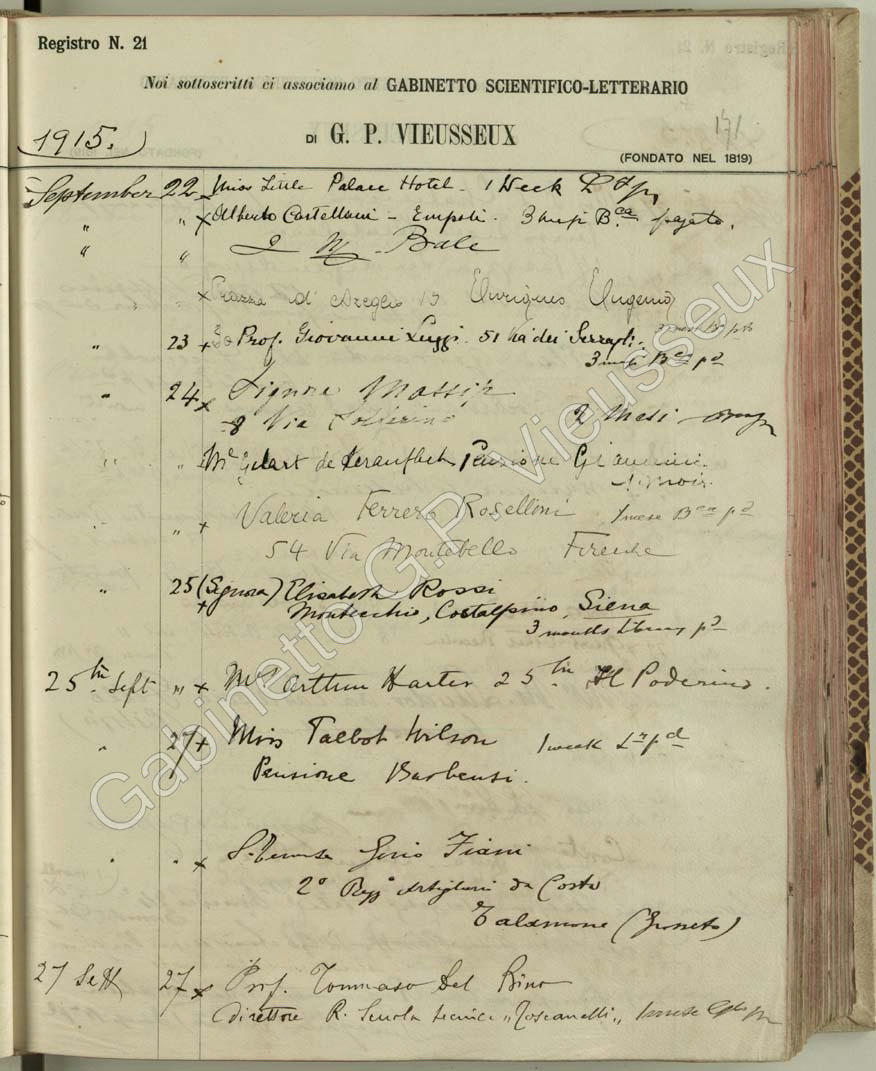 Registro N. 21
Noi sottoscritti ci associamo al GABINETTO SCIENTIFICO-LETTERARIO
171
1915.
DI G. P. VIEUSSEUX
(FONDATO NEL 1819)
September 22 x Miss Little Palace Hotel - 1 Week
" " x Alberto Castellani - Empoli. 3 mesi B.ca pagato.
" " Bale
x Piazza d'Azeglio 15 Enriques Eugenio
" 23 x Prof. Giovanni Luzzi. 51 Via dei Serragli.
3 mesi B.ca pd
" 24 x Signora
8 Via Solferino 2 Mesi
" " Pensione Giannini.
1 mois.
" " x Valeria Ferrero Rosellini 1 mese B.ca pd
54 Via Montebello Firenze
" 25 x (Signora) Elisabeth Rossi
Montecchio, Costalpino, Siena
3 months Library pd
25th Sept " x Arthur Harter 25th Il Poderino.
" 27 x Miss Talbot Wilson 1 week pd
Pensione Barbensi.
" " x Gino Fiani
2º Regg.º Artiglieria da Costa
Talamone (Grosseto)
27 Sett 27 x Prof. Tommaso Del Rino
Direttore R. Scuola tecnica "Toscanelli" 1 mese
Gabinetto G.P. Vieusseux